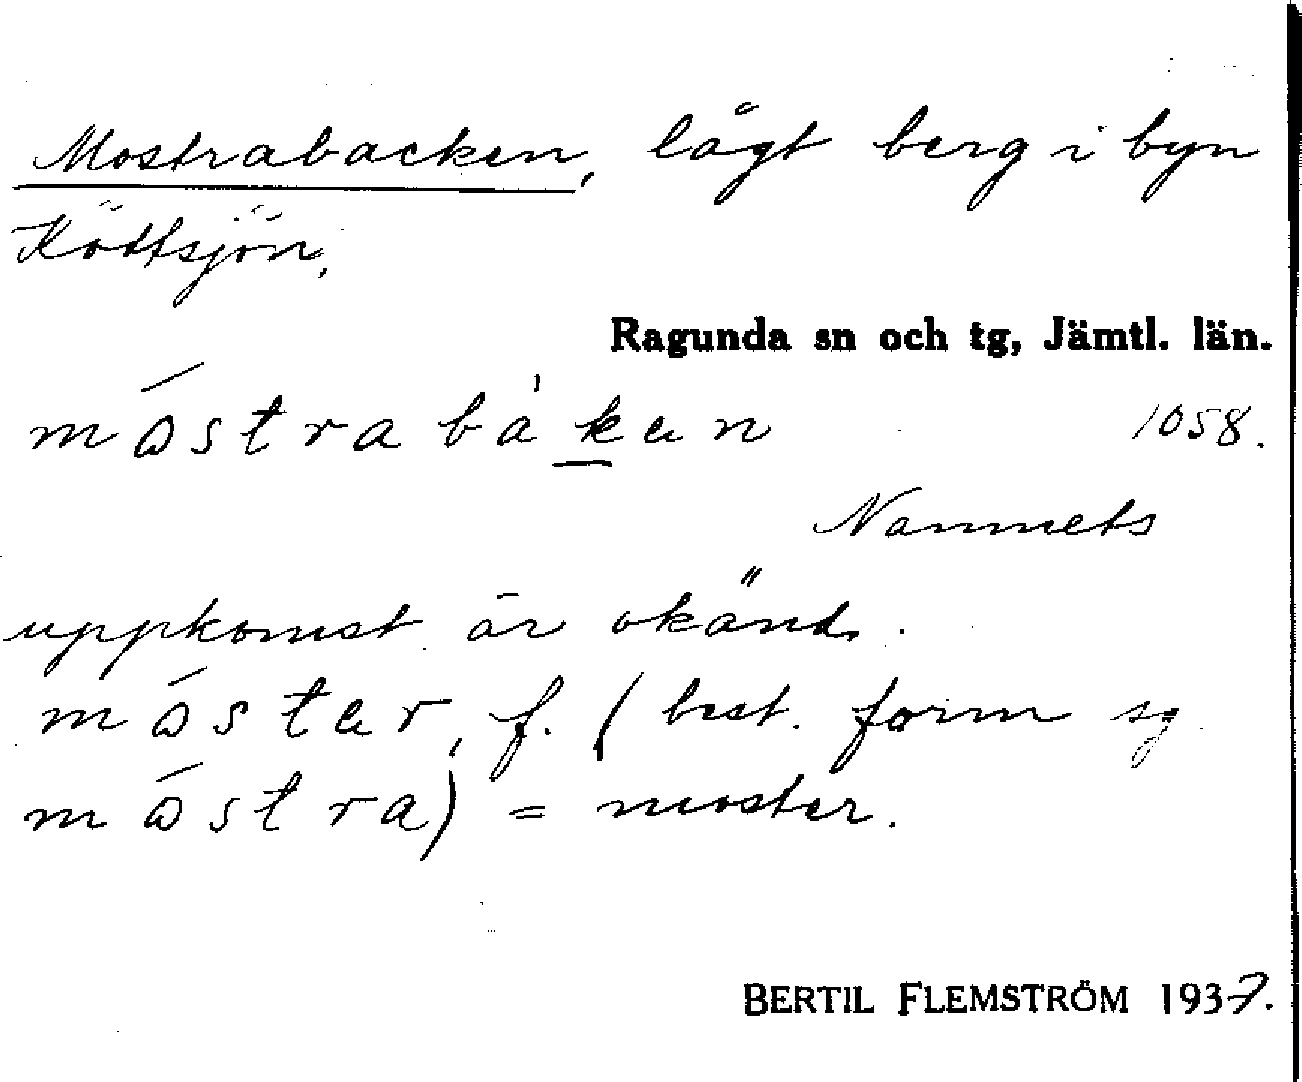 Mostrabacken, lågt berg i byn
Köttsjön,
Ragunda sn och tg, Jämtl. län.
móstrabàken 1058.
Namnets
uppkomst är okänd.
móster, f. (best. form sg
móstra) = moster.
BERTIL FLEMSTRÖM 1937.